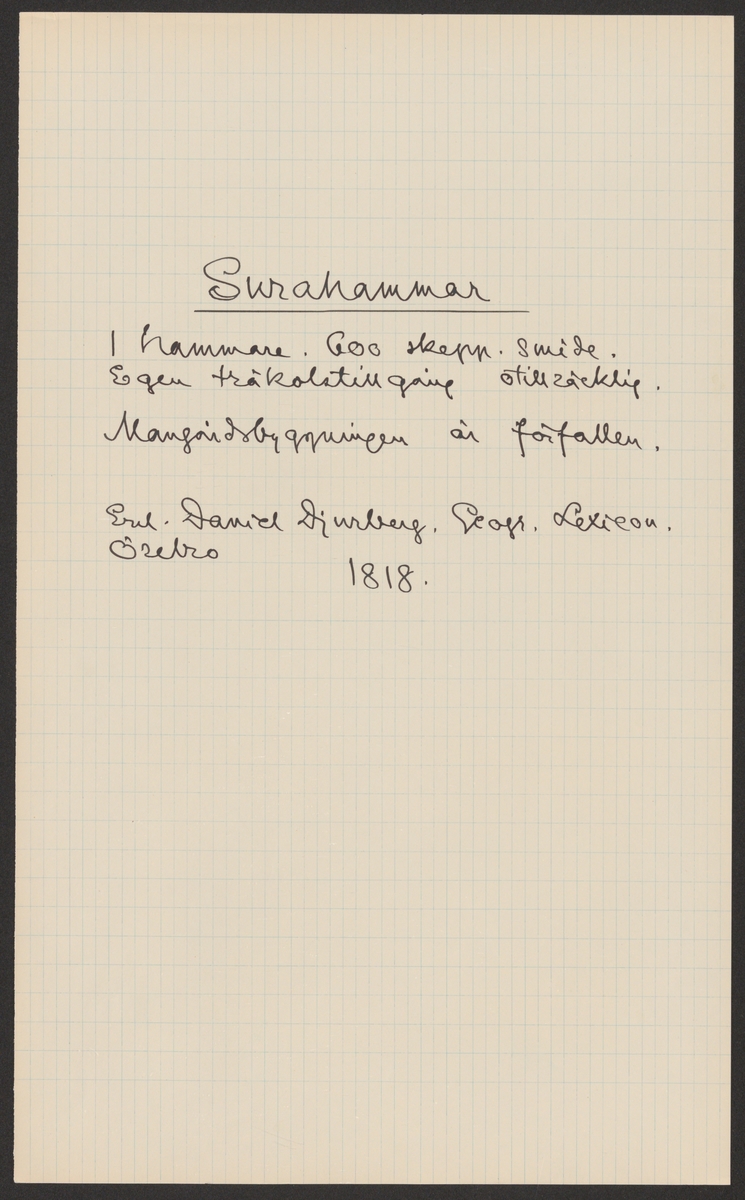 Surahammar
1 hammare. 600 skepp. smide.
Egen träkolstillgång otillräcklig.
Mangårdsbyggningen är förfallen.
Enl. Daniel Djurberg, Geogr. Lexicon.
Örebro
1818.